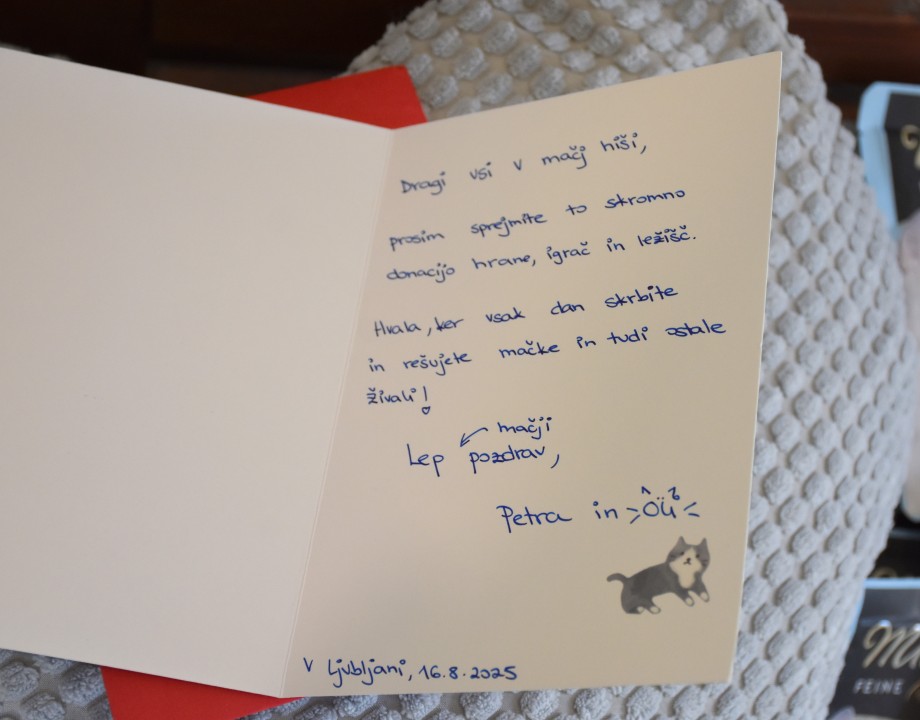 Dragi vsi v mačj hiši,
prosim sprejmite to skromno
donacijo hrane, igrač in ležišč.
Hvala, ker vsak dan skrbite
in rešujete mačke in tudi ostale
živali!
mačji
Lep pozdrav,
Petra in
V Ljubljani, 16.8.2025
FEINE